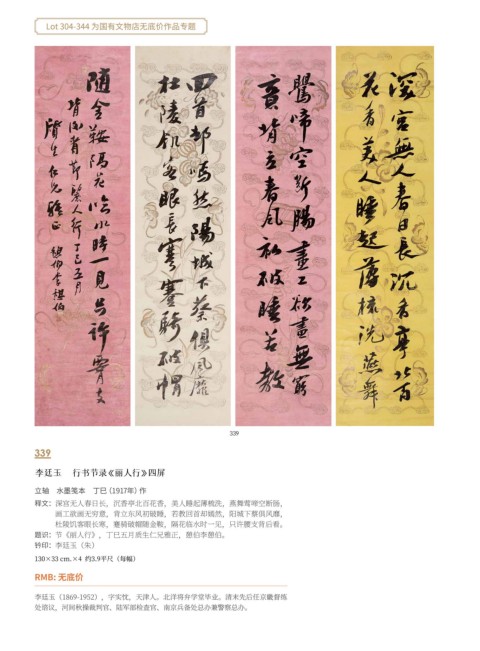 Lot 304-344 为国有文物店无底价作品专题
深宮無人春日長沉香亭北百
花香美人睡起薄梳洗燕舞
鶯啼空斷腸畫工欲畫無窮
意背立春風初破睡若教
回首却嫣然陽城下蔡俱風靡
杜陵飢客眼長寒蹇騎破帽
隨金鞍隔花臨水時一見只許腰支
背後看節麗人行丁巳五月
質生仁兄雅正
339
339
李廷玉 行书节录《丽人行》四屏
立轴 水墨笺本 丁巳（1917年）作
释文：深宫无人春日长，沉香亭北百花香，美人睡起薄梳洗，燕舞莺啼空断肠，
画工欲画无穷意，背立东风初破睡，若教回首却嫣然，阳城下蔡俱风靡，
杜陵饥客眼长寒，蹇骑破帽随金鞍，隔花临水时一见，只许腰支背后看。
题识：节《丽人行》，丁巳五月质生仁兄雅正，憩伯李憩伯。
钤印：李廷玉（朱）
130×33 cm.×4 约3.9平尺（每幅）
RMB: 无底价
李廷玉（1869-1952），字实忱，天津人。北洋将弁学堂毕业。清末先后任京畿督练
处借议，河间秋操裁判官、陆军部检查官、南京兵备处总办兼警察总办。